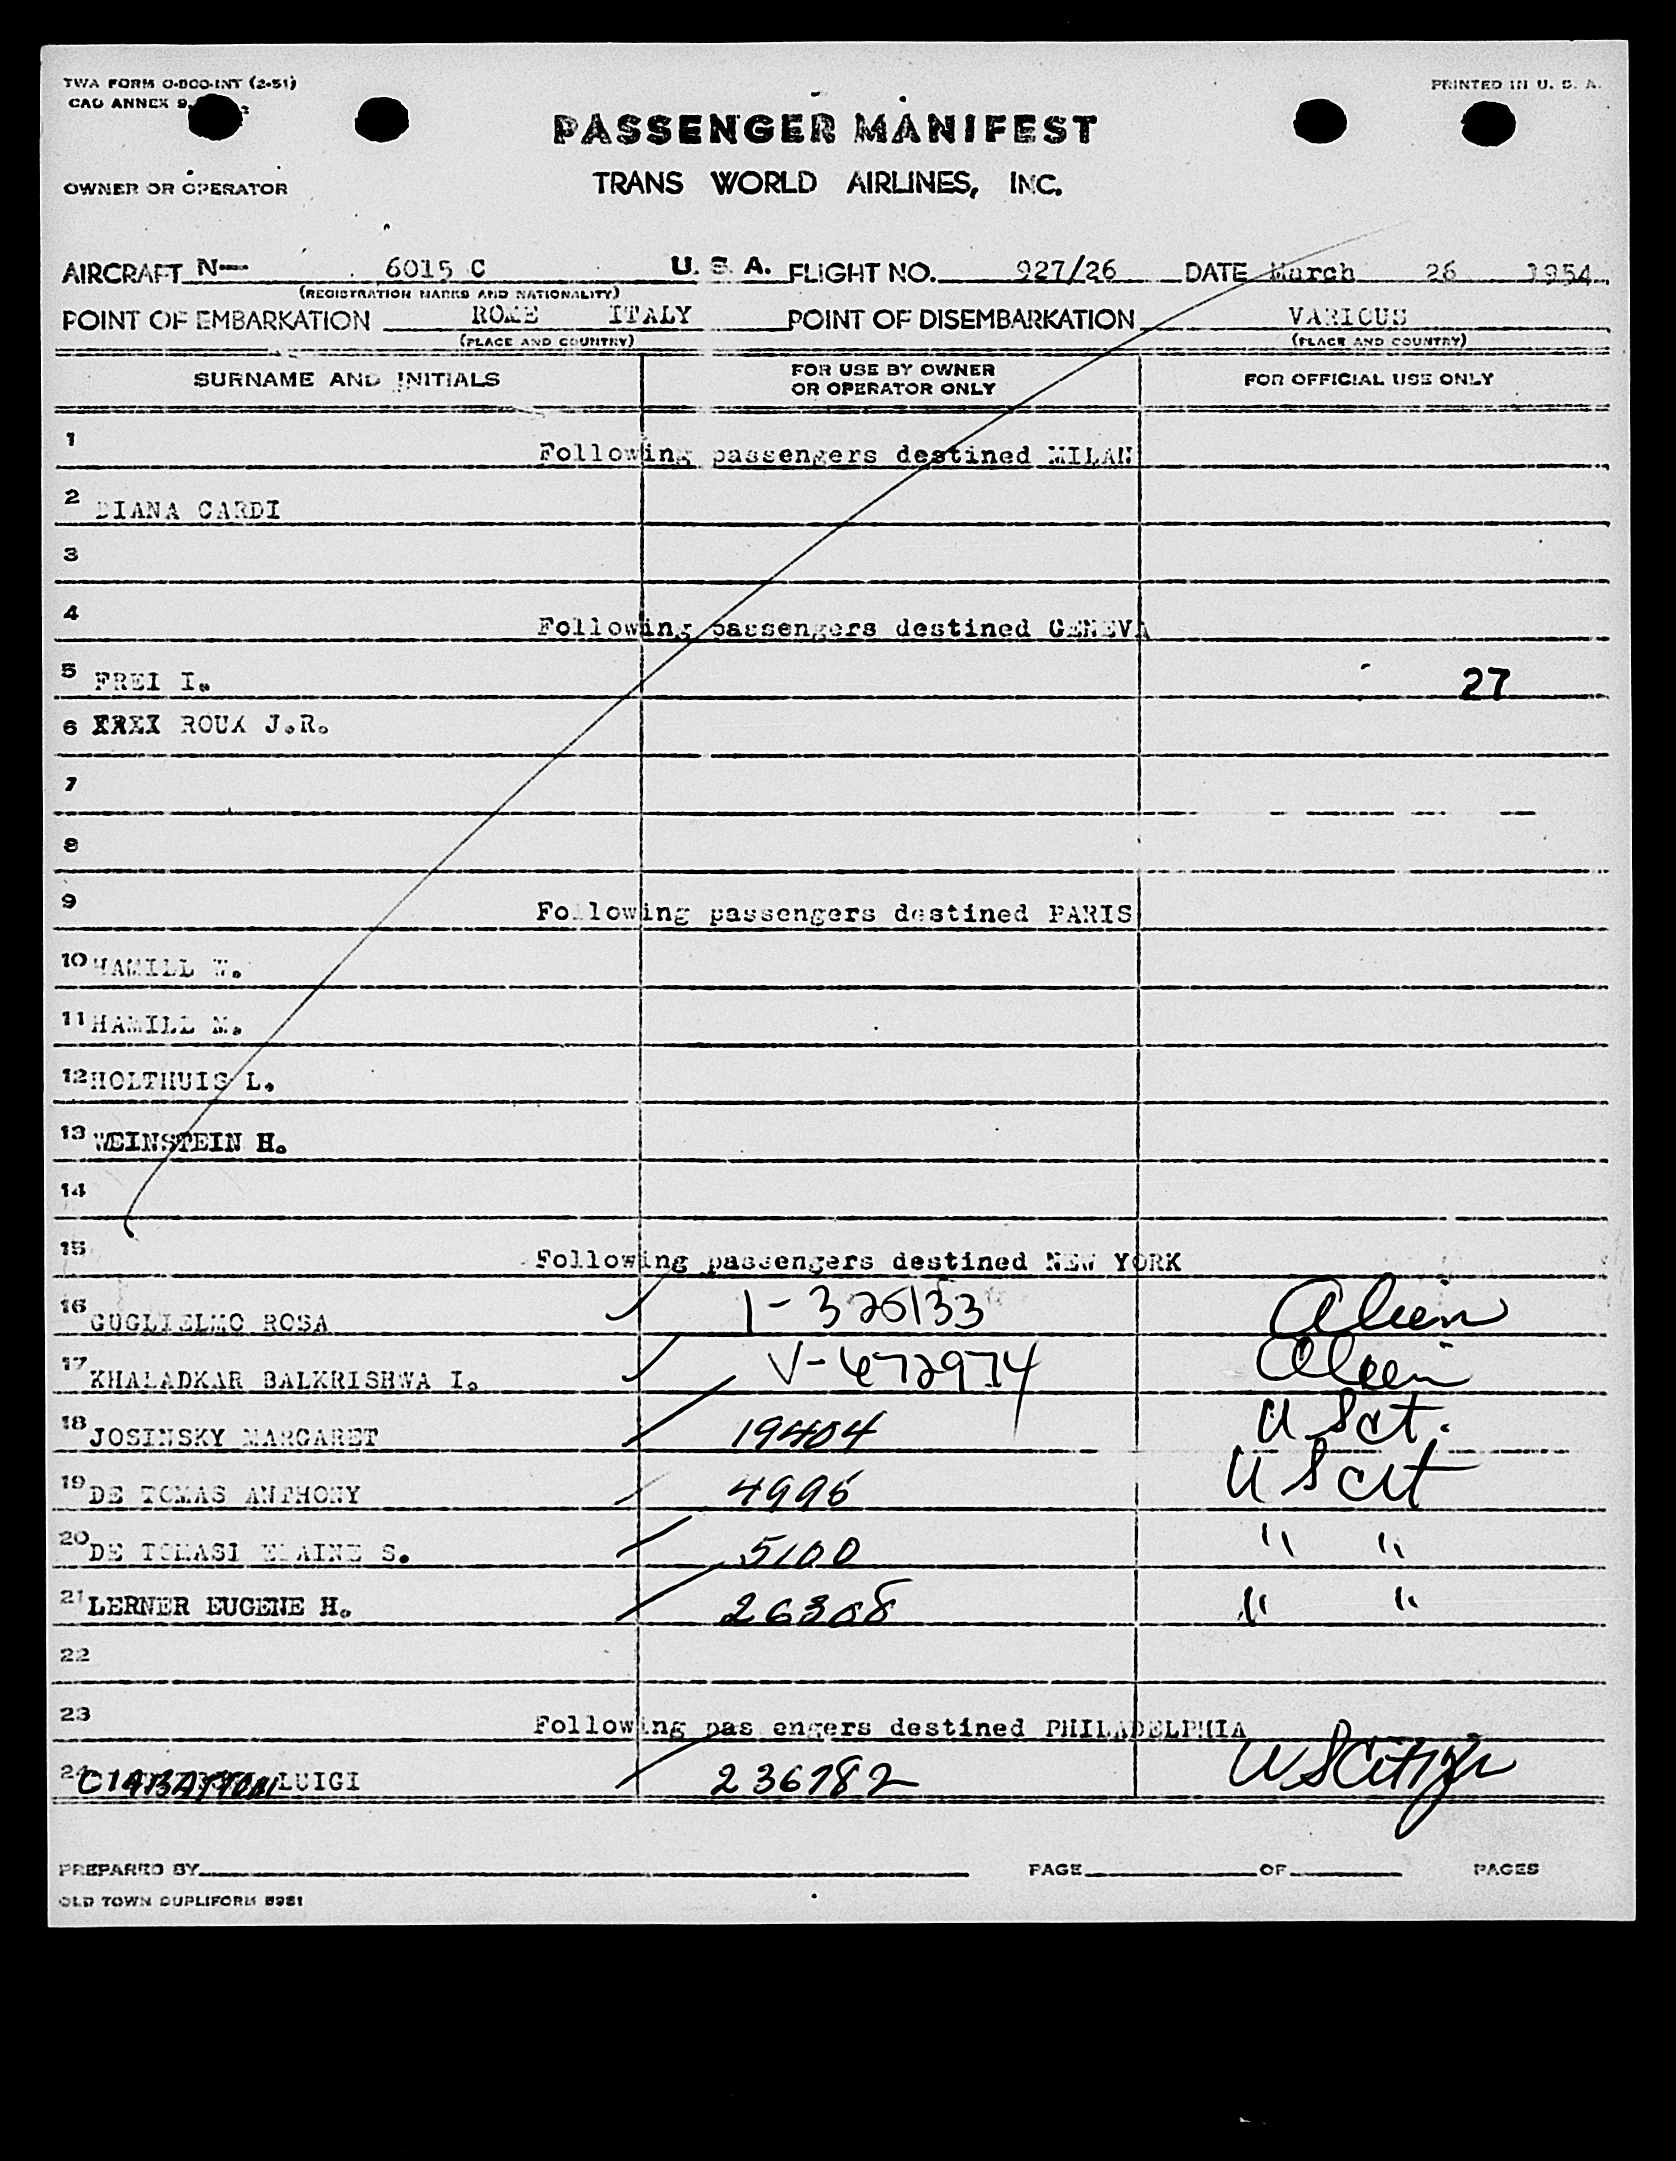 TWA FORM O-800-INT (2-51)
PRINTED IN U. S. A.
CAO ANNEX 9
PASSENGER MANIFEST
OWNER OR OPERATOR
TRANS WORLD AIRLINES, INC.
AIRCRAFT N— 6015 C U. S. A. FLIGHT NO. 927/26 DATE March 26 1954
(REGISTRATION MARKS AND NATIONALITY)
POINT OF EMBARKATION ROME ITALY POINT OF DISEMBARKATION VARIOUS
(PLACE AND COUNTRY) (PLACE AND COUNTRY)
SURNAME AND INITIALS FOR USE BY OWNER OR OPERATOR ONLY FOR OFFICIAL USE ONLY
1 Following passengers destined MILAN
2 DIANA CARDI
3
4 Following passengers destined GENEVA
5 FREI I. 27
6 ROUX J.R.
7
8
9 Following passengers destined PARIS
10 HAMILL W.
11 HAMILL M.
12 HOLTHUIS L.
13 WEINSTEIN H.
14
15 Following passengers destined NEW YORK
16 GUGLIELMO ROSA 1-326133 Alien
17 KHALADKAR BALKRISHWA I. V-672974 Alien
18 JOSINSKY MARGARET 19404 U S cit.
19 DE TOMAS ANTHONY 4996 U S cit
20 DE TOMASI ELAINE S. 5100 " "
21 LERNER EUGENE H. 26308 " "
22
23 Following passengers destined PHILADELPHIA
24 CIABATTONI LUIGI 236782 U S Citizen
PREPARED BY PAGE OF PAGES
OLD TOWN DUPLIFORM 8981